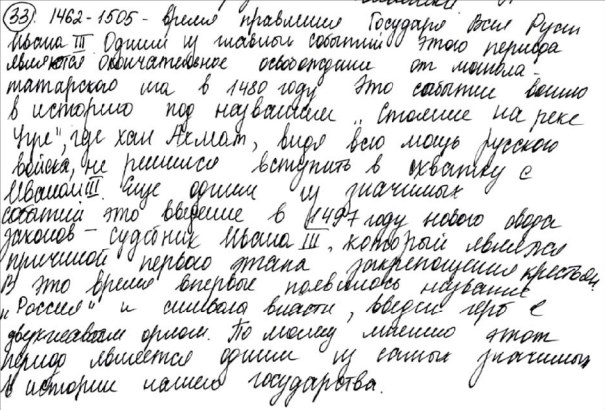 33. 1462-1505 - время правления Государя Всея Руси
Ивана III. Одним из главных событий этого периода
являются окончательное освобождение от монгола-
татарского ига в 1480 году. Это событие вошло
в историю под названием "Стояние на реке
Угре", где хан Ахмат, видя всю мощь русского
войска, не решился вступить в схватку с
Иваном III. Еще одним из значимых
событий это введение в 1497 году нового свода
законов - судебник Ивана III, который является
причиной первого этапа закрепощения крестьян.
В это время впервые появилось название
"Россия" и символа власти, введён герб с
двухглавым орлом. По моему мнению этот
период является одним из самых значимых
в истории нашего государства.